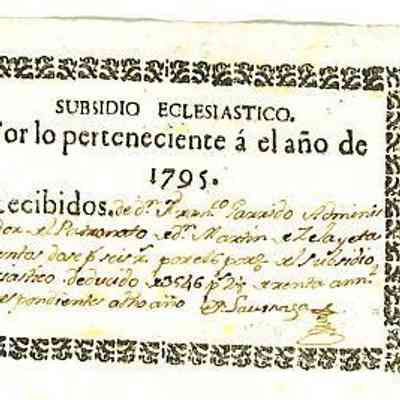 SUBSIDIO ECLESIASTICO.
or lo perteneciente á el año de
1795.
ecibidos. de dn. Franco. Garrido Adminis
dor el Patronato de dn. Martin de Zelayeta
entos dose ps. seis rs. por el 6 p
subsidio
siastico deducido de 3546 ps. 2 rs. de renta
espondientes a dho año